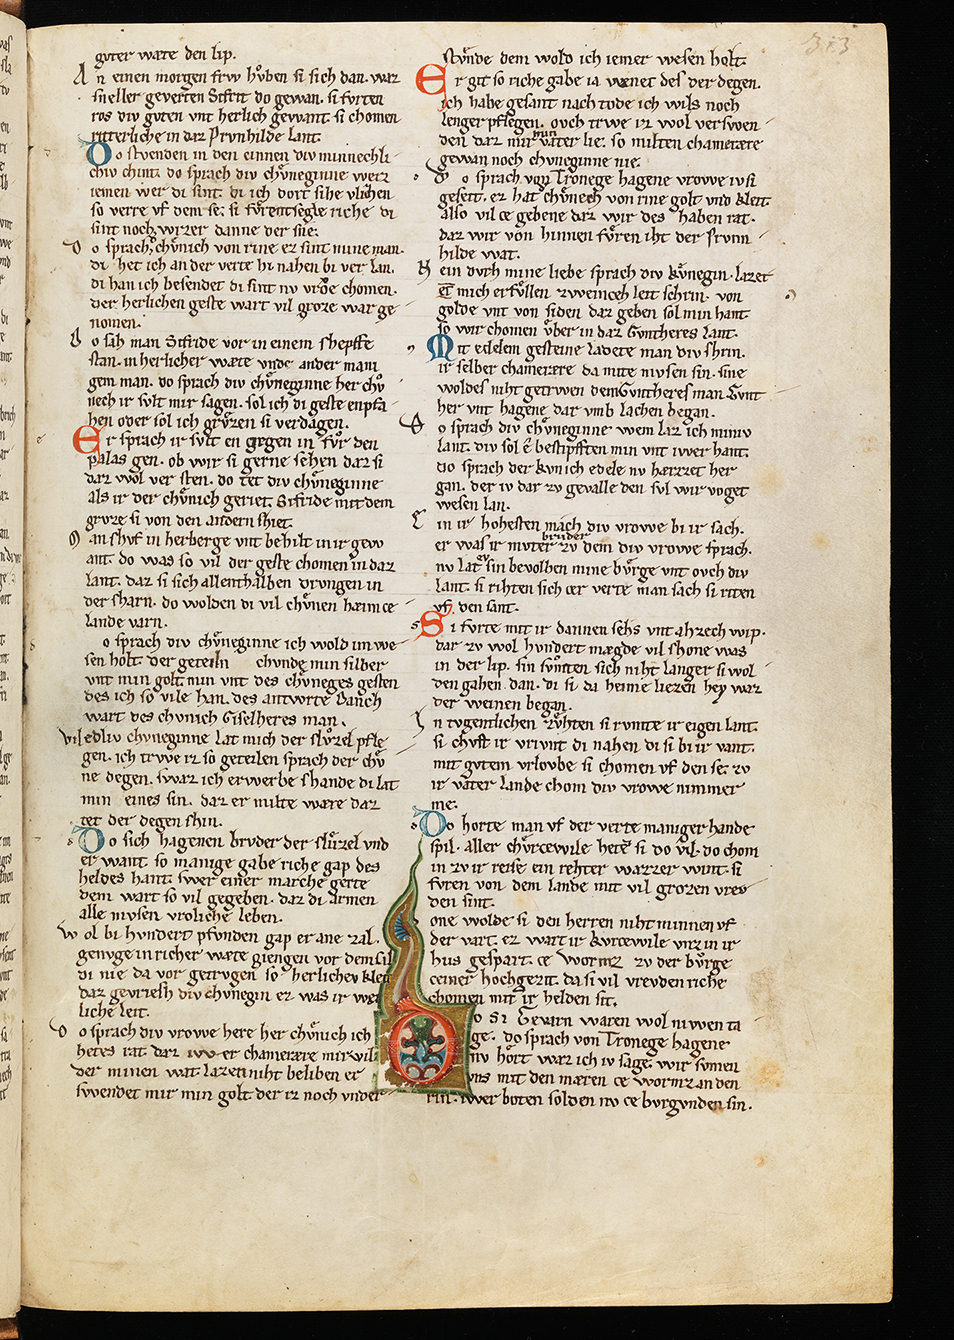 313
guter wære den lip.
A n einen morgen frw hůben si sich dan. waz
sneller geverten Sifrit do gewan. si furten
ros div guten vnt herlich gewant. si chomen
ritterliche in daz Prvnhilde lant.
Do stvenden in den cinnen div minnechli-
chiv chint. do sprach div chůneginne weiz
iemen wer di sint. di ich dort sihe vliezen
so verre vf dem se. si fůrent segle riche di
sint noch wizer danne der sne.
D o sprach der chůnich von rine ez sint mine man.
di het ich an der verte hi nahen bi ver lan.
di han ich besendet di sint nv vrŏe chomen.
der herlichen geste wart vil groze war ge-
nomen.
D o sah man Sifride vor in einem sheffe
stan. in herlicher wæte vnde ander man-
gem man. do sprach div chůneginne her chů-
nech ir svlt mir sagen. sol ich di geste enpfa-
hen oder sol ich grůzen si verdagen.
Er sprach ir svlt en gegen in fůr den
palas gen. ob wir si gerne sehen daz si
daz wol ver sten. do tet div chůneginne
als ir der chůnich geriet. Sifride mit dem
grvze si von den andern shiet.
M an shvf in herberge vnt behilt in ir gew-
ant. do was so vil der geste chomen in daz
lant. daz si sich allenthalben drvngen in
der sharn. do wolden di vil chůnen hæim ce
lande varn.
o sprach div chůneginne ich wold im we-
sen holt der geteiln chvnde min silber
vnt min golt. min vnt des chvneges gesten
des ich so vile han. des antwrte Danch
wart des chvnich Giselheres man.
vil edliv chvneginne lat mich der slůzel pfle-
gen. ich trwe iz so geteilen sprach der chů-
ne degen. swaz ich erwerbe shande di lat
min eines sin. daz er milte wære daz
tet der degen shin.
Do sich hagenen brvder der slůzel vnd
er want so manige gabe riche gap des
heldes hant. swer einer marche gerte
dem wart so vil gegeben. daz di armen
alle mvsen vroliche leben.
W ol bi hvndert pfvnden gap er ane zal.
genvge in richer wæte giengen vor dem sal
di nie da vor getrvgen so herlichev kleit
daz gevriesh div chvnegin ez was ir wær-
liche leit.
D o sprach div vrowe here her chůnich ich
hetes rat. daz iwer chamerære mir wil
der minen wat lazen niht beliben er
swendet mir min golt der iz noch vnder-
stůnde dem wold ich iemer wesen holt.
Er git so riche gabe ia wænet des der degen.
ich habe gesant nach tode ich wils noch
lenger pflegen. ovch trwe iz wol verswen-
den daz mir min vater lie. so milten chamerære
gewan noch chvneginne nie.
D o sprach von Tronege hagene vrowe iv si
geseit. ez hat chůnech von rine golt vnd kleit
also vil ce gebene daz wir des haben rat.
daz wir von hinnen fůren iht der Prvnn-
hilde wat.
N ein dvrh mine liebe sprach div kůnegin. lazet
mich erfůllen zweinceh leit schrin. von
golde vnt von siden daz geben sol min hant
so wir chomen ůber in daz Gvntheres lant.
Mit edelem gesteine ladete man div shrin.
ir selber chamerære da mite mvsen sin. sine
woldes niht getrwen dem Gvntheres man. Gvnt-
her vnt hagene dar vmb lachen began.
D o sprach div chůneginne wem laz ich miniv
lant. div sol ê bestiften min vnt iwer hant.
do sprach der kvnich edele nv hæizzet her
gan. der iv dar zv gevalle den svl wir voget
wesen lan.
E in ir hohesten mach div vrowe bi ir sach.
er was ir mvter brůder zv dem div vrowe sprach.
nv lat ev sin bevolhen mine bůrge vnt ovch div
lant. si rihten sich cer verte man sach si riten
vf den sant.
Si fvrte mit ir dannen sehs vnt ahzech wip.
dar zv wol hvndert mægde vil shone was
in der lip. sin sůmten sich niht langer si wol-
den gahen dan. di si da heime liezen hey waz
der weinen began.
I n tvgentlichen zůhten si rvmte ir eigen lant.
si chvst ir vrivnt di nahen di si bi ir vant.
mit gvtem vrlovbe si chomen vf den se. zv
ir vater lande chom div vrowe nimmer
me.
Do horte man vf der verte maniger hande
spil. aller chůrcewile hete si do vil. do chom
in zv ir reise ein rehter wazzer wint. si
fvren von dem lande mit vil grozen vrev-
den sint.
one wolde si den herren niht minnen vf
der vart. ez wart ir kvrcewile vnz in ir
hus gespart. ce wormz zv der bůrge
ceiner hochgezit. da si vil vrevden riche
chomen mit ir helden sit.
Do Si Gevarn waren wol nivven ta-
ge. do sprach von Tronege hagene
nv hort waz ich iv sage. wir svmen
vns mit den mæren ce wormz an den
rin. iwer boten solden nv ce bvrgvnden sin.